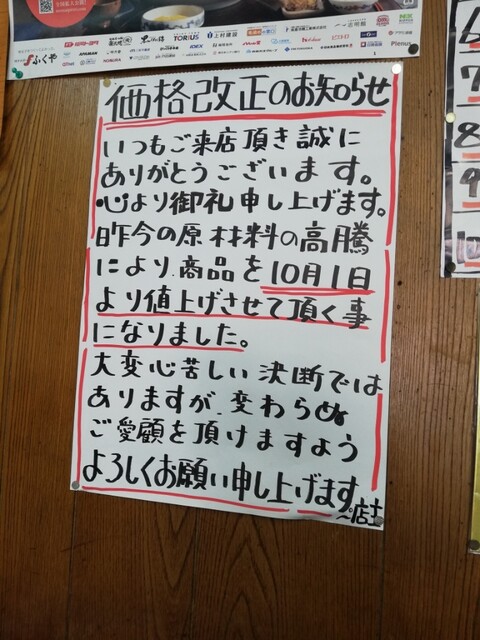 ふくや
TORIUS
上村建設
IDEX
Plenus
価格改正のお知らせ
いつもご来店頂き誠に
ありがとうございます。
心より御礼申し上げます。
昨今の原材料の高騰
により商品を10月1日
より値上げさせて頂く事
になりました。
大変心苦しい決断では
ありますが、変わらぬ
ご愛顧を頂けますよう
よろしくお願い申し上げます。
～店主
7
8
9